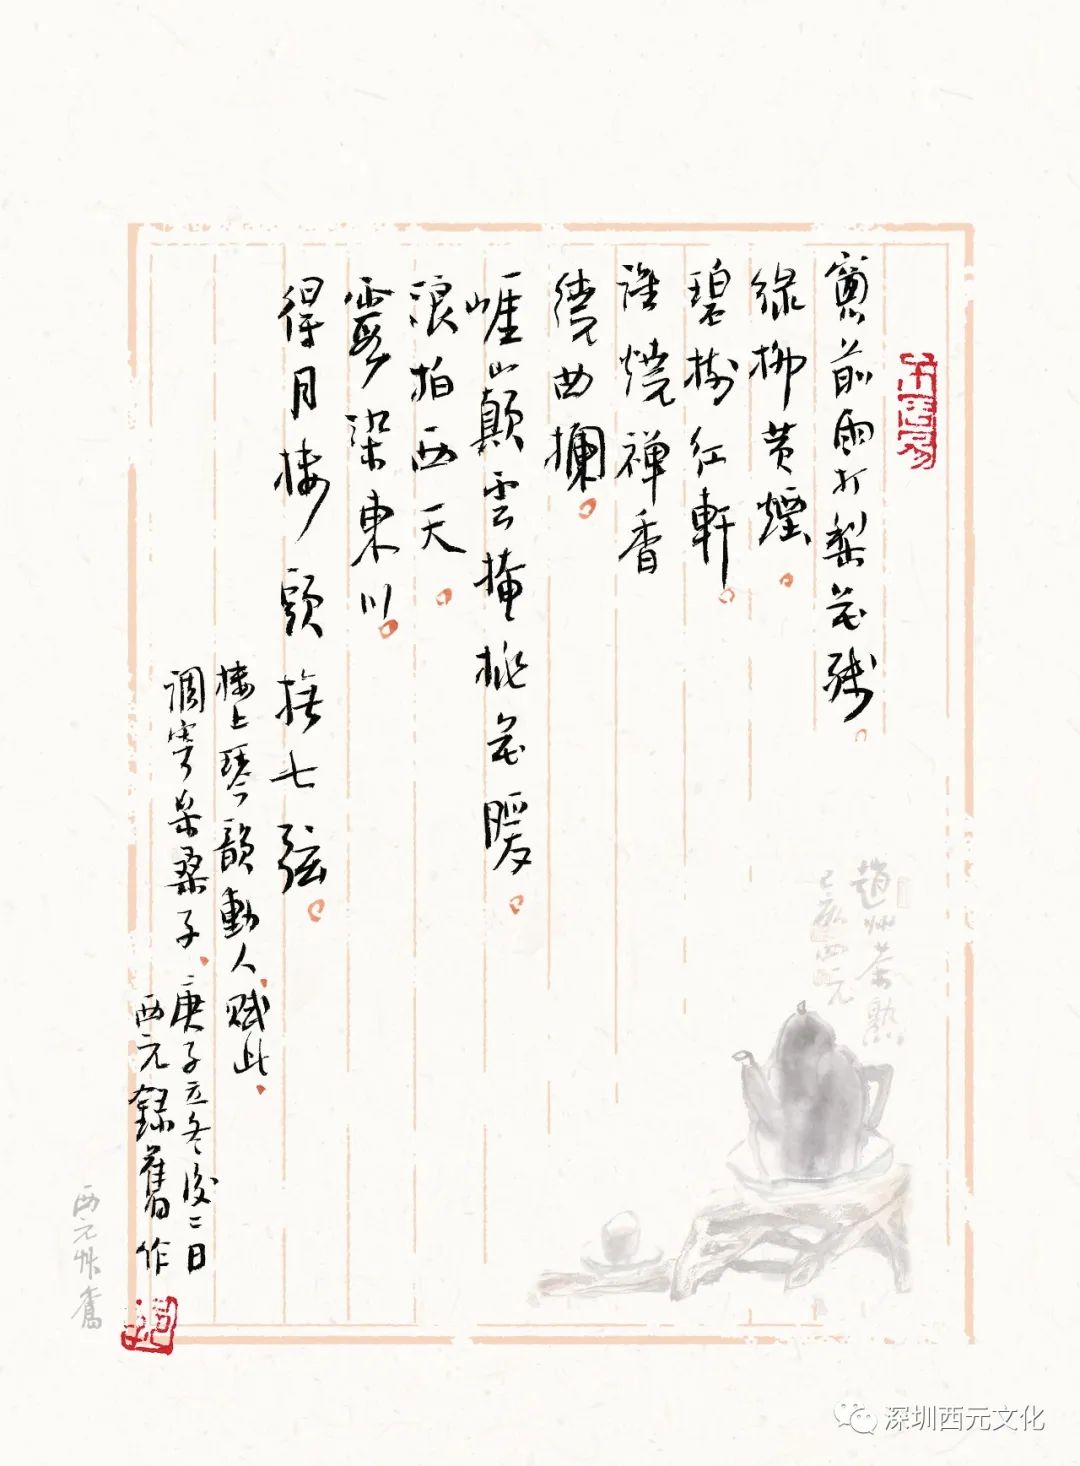 窗前雨打梨花殘。
綠柳黃煙。
碧樹紅軒。
誰燒禪香
繞曲攔。
崖山巔雲掩桃花暖。
浪拍西天。
霞染東川。
得月樓頭撫七弦。
樓上琴韻動人、賦此、
調寄采桑子、庚子立冬後二日
西元錄舊作
趙州茶勳
己亥西元
西元
深圳西元文化